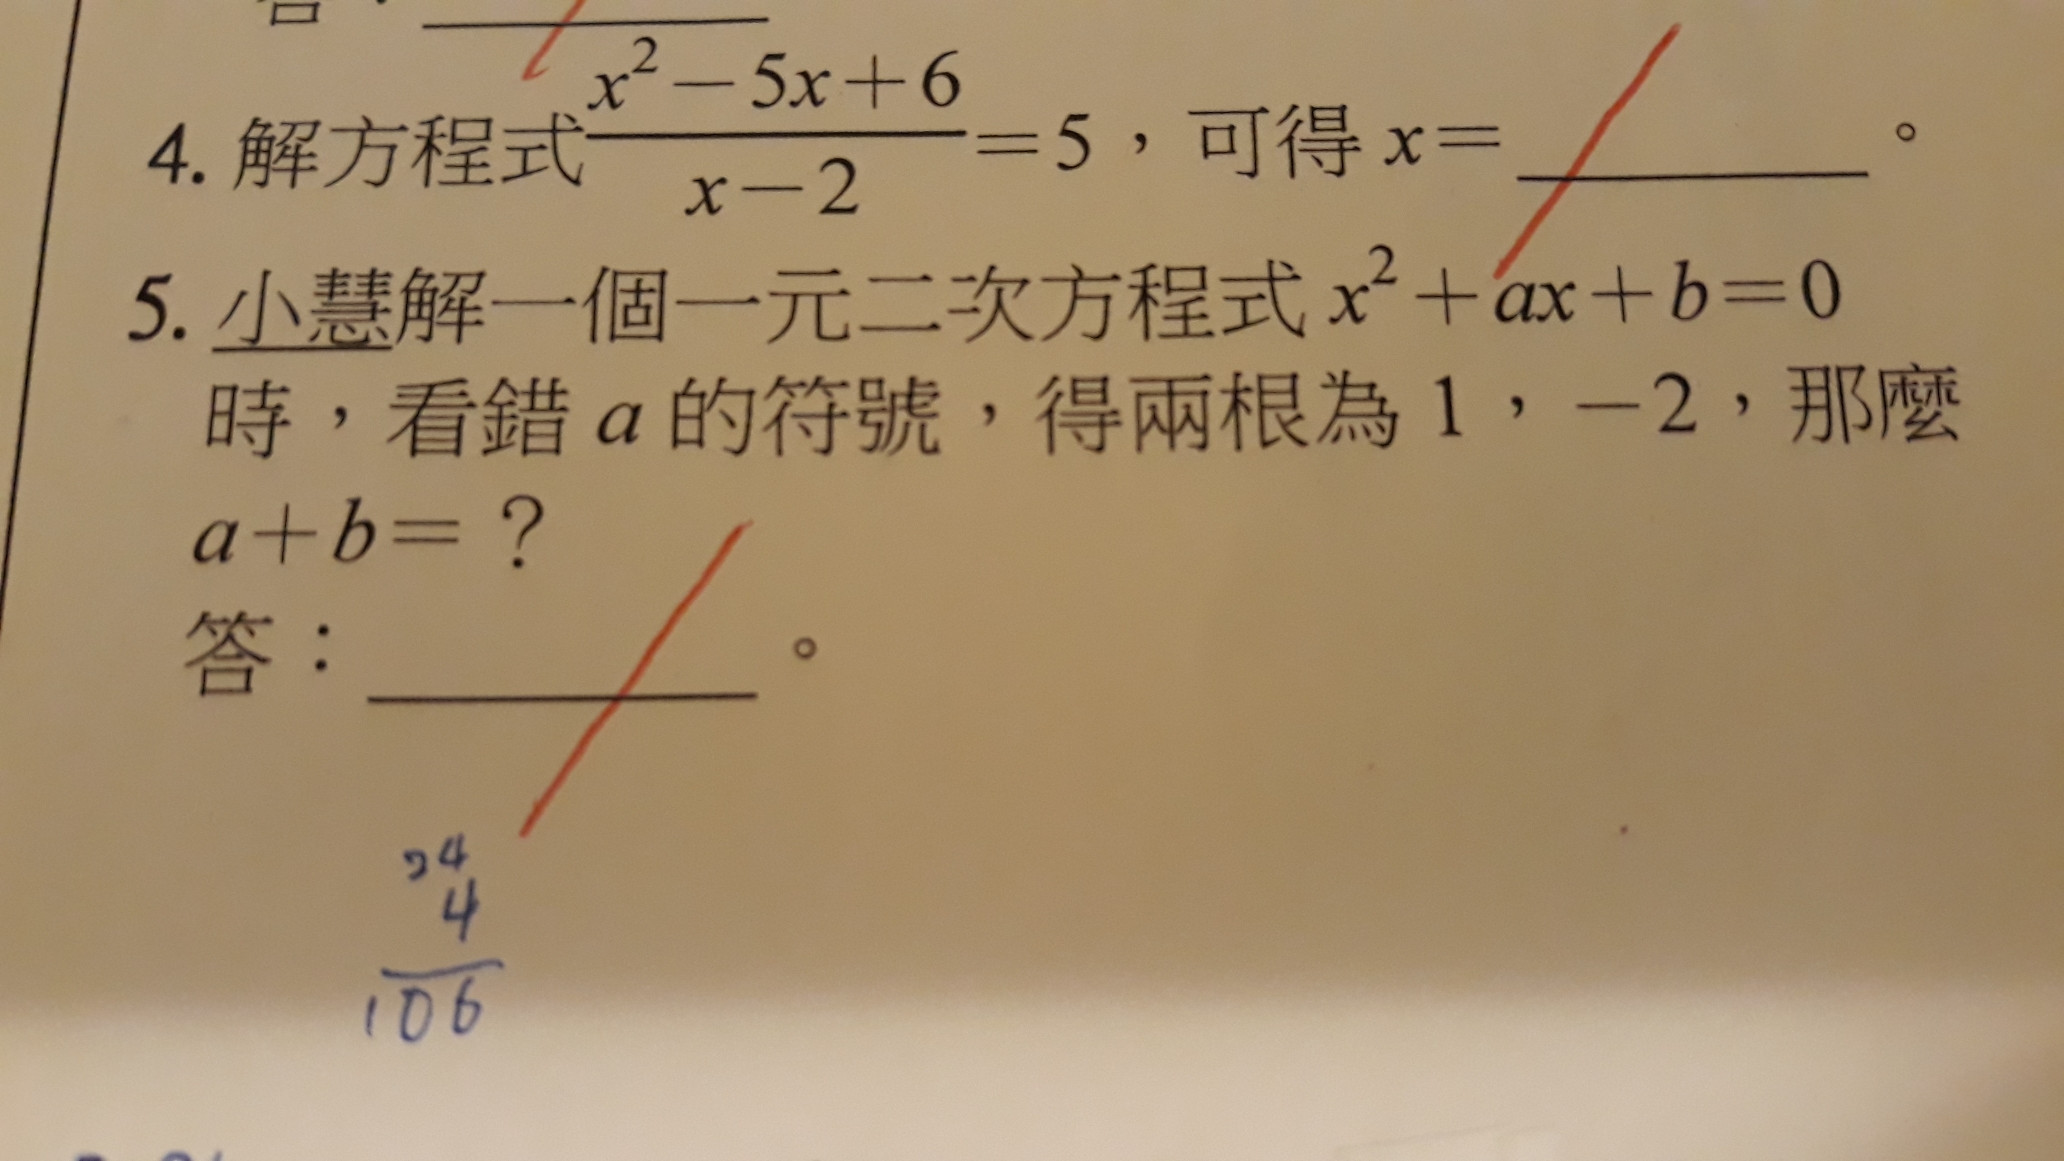 答：
4. 解方程式 \frac{x²－5x＋6}{x－2}＝5，可得 x＝____。
5. 小慧解一個一元二次方程式 x²＋ax＋b＝0
時，看錯 a 的符號，得兩根為 1，－2，那麼
a＋b＝？
答：____。
24
4
106